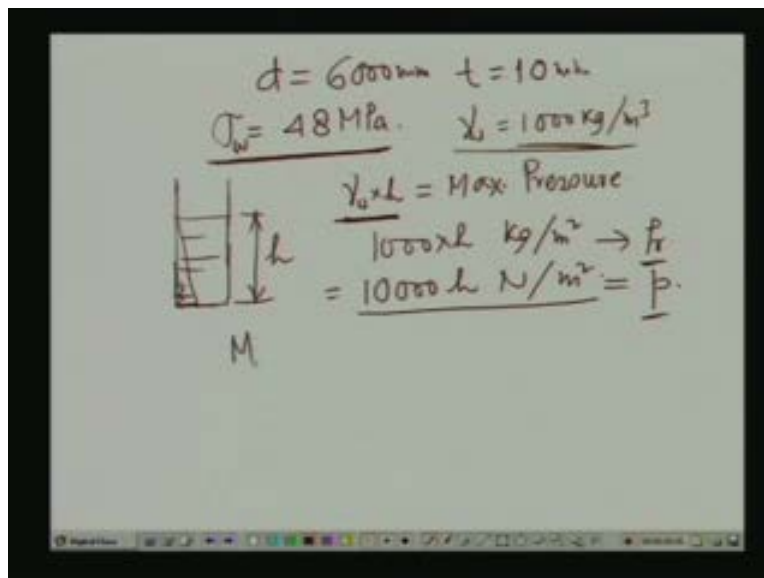 d = 6000mm t = 10mm
σw = 48 MPa. γw = 1000 kg/m³
γw×h = Max. Pressure
h
1000×h kg/m² → p
= 10000 h N/m² = p.
M